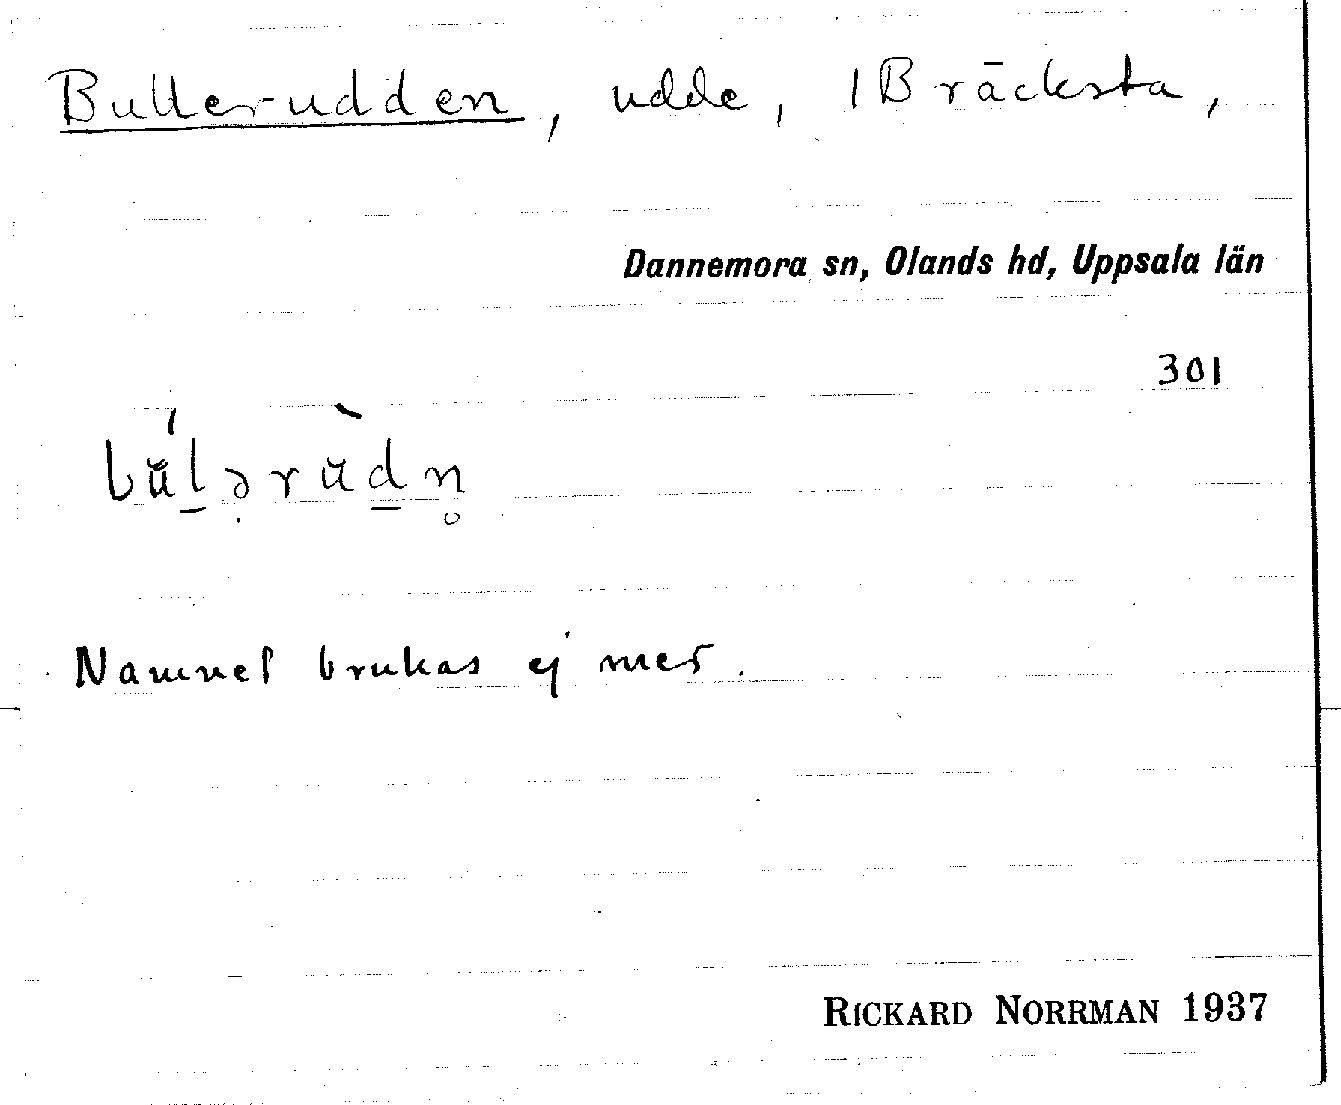 Bullerudden, udde, 1 Bräcksta,
Dannemora sn, Olands hd, Uppsala län
301
bŭ́lərŭ̀dn̥
Namnet brukas ej mer.
RICKARD NORRMAN 1937